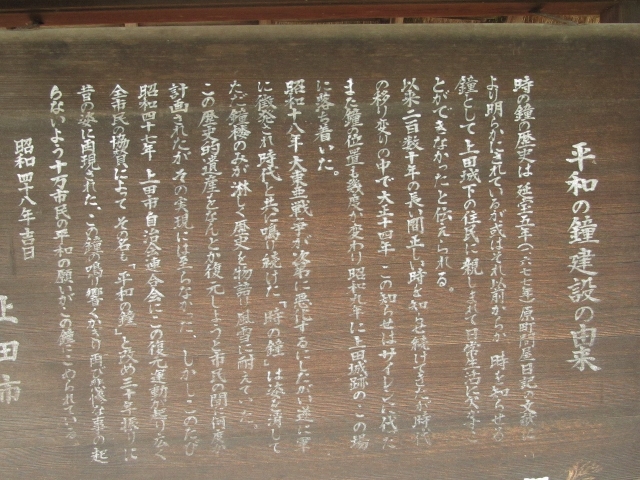 平和の鐘建設の由来
時の鐘の歴史は 延宝五年(一六七七年)原町問屋日記の文献に
より明らかにされているが或はそれ以前からか、時を知らせる
鐘として上田城下の住民に親しまれて日常生活に欠かすこ
とができなかったと伝えられる。
以来二百数十年の長い間正しい時を知らせ続けてきたが時代
の移り変りの中で大正十四年 この知らせはサイレンに代た
また鐘の位置も幾度か変わり昭和九年に上田城跡の この場
に落ち着いた。
昭和十八年大東亜戦争が次第に悪化するにしたがい遂に軍
に徴発され時代と共に鳴り続けた「時の鐘」は姿を消して
たゞ鐘楼のみが淋しく歴史を物語り風雪に耐えていた。
この歴史的遺産をなんとか復元しようと市民の間に何度か
計画されたがその実現には至らなかった、しかしこのたび
昭和四十七年 上田市自治会連合会にこの復元運動起り広く
全市民の協賛によって その名も「平和の鐘」と改め三十年振りに
昔の姿に再現された、この鐘の鳴り響くかぎり再び不幸な事の起
らないよう十万市民の平和の願いがこの鐘にこめられている。
昭和四十八年吉日
上田市